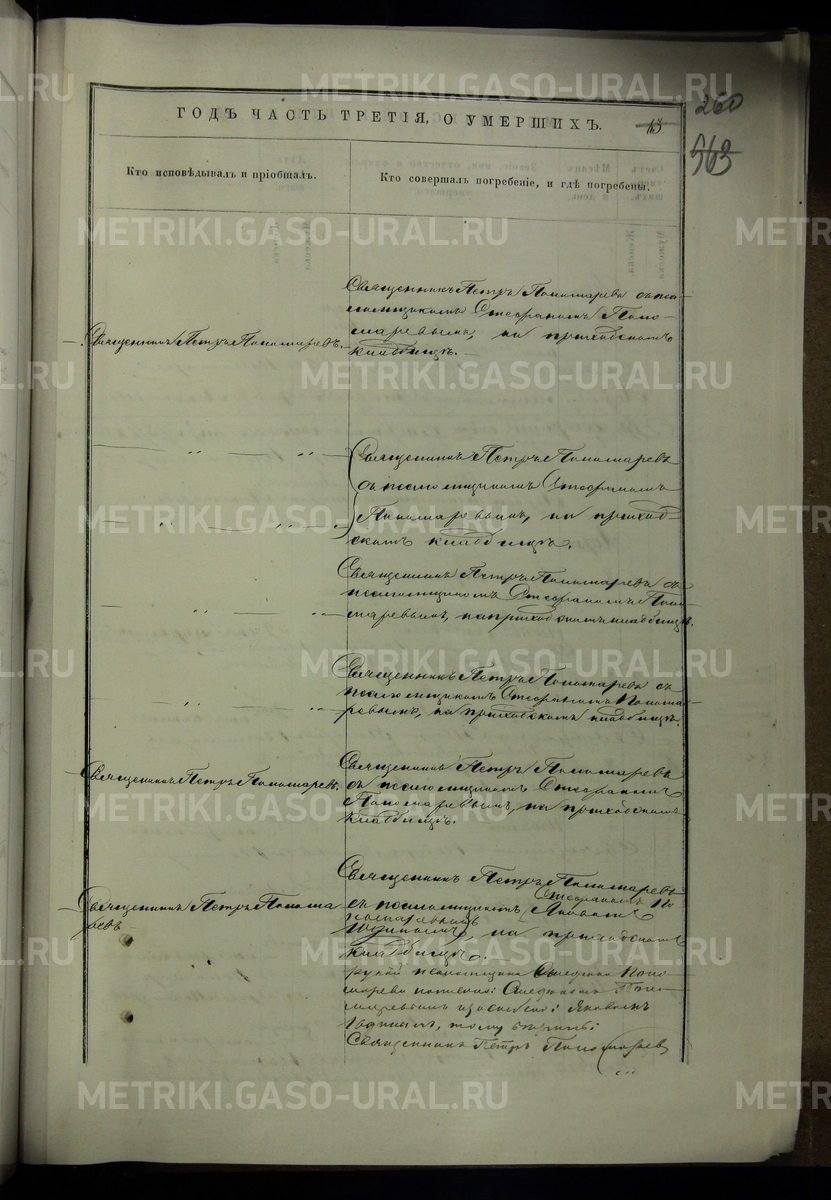 260
563
ГОДЪ ЧАСТЬ ТРЕТІЯ, О УМЕРШИХЪ.
Кто исповѣдывалъ и пріобщалъ.
Кто совершалъ погребеніе, и гдѣ погребены.
Священникъ Петръ Пономаревъ.
Священникъ Петръ Пономаревъ съ пса-
ломщикомъ Стефаномъ Поно-
маревымъ, на приходскомъ
кладбищѣ.
Священникъ Петръ Пономаревъ
съ псаломщикомъ Стефаномъ
Пономаревымъ, на приход-
скомъ кладбищѣ.
Священникъ Петръ Пономаревъ съ
псаломщикомъ Стефаномъ Поно-
маревымъ, на приходскомъ кладбищѣ.
Священникъ Петръ Пономаревъ съ
псаломщикомъ Стефаномъ Понома-
ревымъ, на приходскомъ кладбищѣ.
Священникъ Петръ Пономаревъ.
Священникъ Петръ Пономаревъ
съ псаломщикомъ Стефаномъ
Пономаревымъ, на приходскомъ
кладбищѣ.
Священникъ Петръ Понома
ревъ
Священникъ Петръ Пономаревъ
Стефаномъ По
съ псаломщикомъ Яковомъ
номаревымъ
на приходскомъ
кладбищѣ.
рукой псаломщика Стефана Поно-
марева написано: Стефаномъ Поно-
маревымъ Яковомъ
тому
Священникъ Петръ Пономаревъ
METRIKI.GASO-URAL.RU